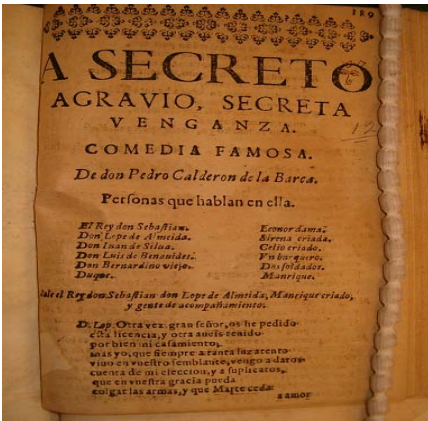 189
A SECRETO
AGRAVIO, SECRETA
VENGANZA.
12
COMEDIA FAMOSA.
De don Pedro Calderon de la Barca.
Personas que hablan en ella.
El Rey don Sebastian.
Don Lope de Almeida.
Don Iuan de Silua.
Don Luis de Benauides.
Don Bernardino viejo.
Duque.
Leonor dama.
Sirena criada.
Celio criado.
Vn barquero.
Dos soldados.
Manrique.
Sale el Rey don Sebastian don Lope de Almeida, Manrique criado,
y gente de acompañamiento.
D. Lop. Otra vez, gran señor, os he pedido
esta licencia, y otra aueis tenido
por bien mi casamiento,
mas yo, que siempre a tanta luz atento
viuo en vuestro semblante, vengo a daros
cuenta de mi eleccion, y a suplicaros,
que en vuestra gracia pueda
colgar las armas, y que Marte ceda
a amor